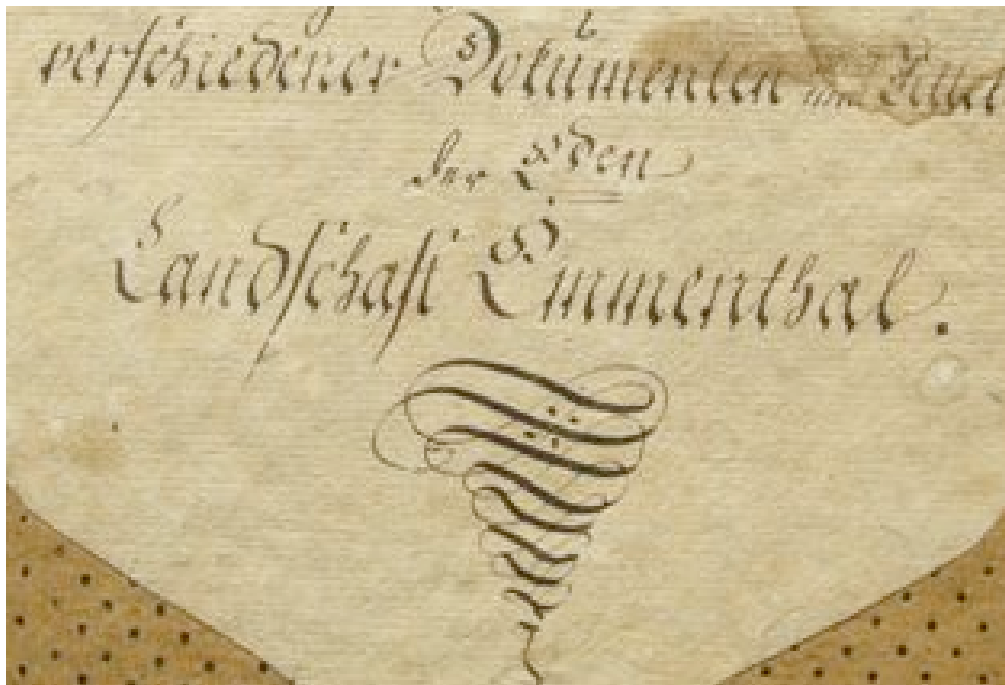 verschiedener Dokumenten und
der Eden
Landschaft Emmenthal.